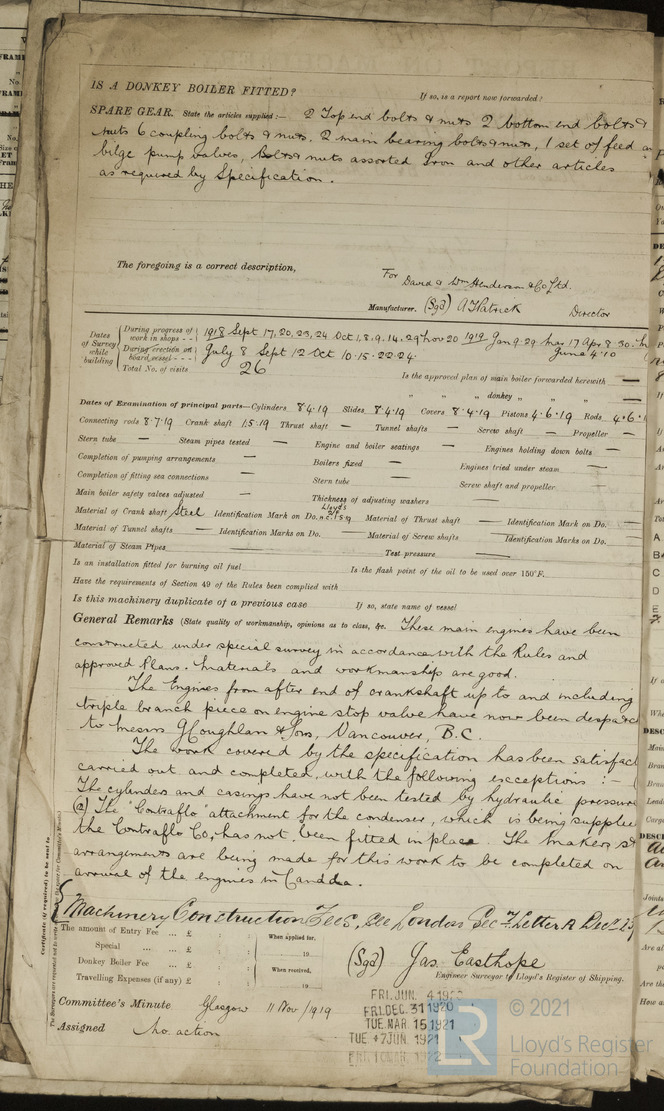 IS A DONKEY BOILER FITTED? If so, is a report now forwarded?
SPARE GEAR. State the articles supplied:— 2 Top end bolts & nuts 2 bottom end bolts &
nuts 6 coupling bolts & nuts. 2 main bearing bolts & nuts, 1 set of feed an
bilge pump valves, Bolts & nuts assorted Iron and other articles
as required by Specification.
The foregoing is a correct description,
For David & Wm Henderson & Co Ltd.
Manufacturer. (Sgd) A Patrick Director
Dates of Survey while building
During progress of work in shops - - 1918 Sept 17, 20, 23, 24 Oct 1, 8, 9, 14, 29 Nov 20 1919 Jan 9 29 Mar 17 Apr 8 30
During erection on board vessel - - - July 8 Sept 12 Oct 10. 15. 22. 24. June 4. 10
Total No. of visits 26
Is the approved plan of main boiler forwarded herewith —
" " " donkey " " " —
Dates of Examination of principal parts—Cylinders 8 4. 19 Slides 8 4. 19 Covers 8. 4. 19 Pistons 4. 6. 19 Rods 4. 6. 1
Connecting rods 8. 7. 19 Crank shaft 1. 5. 19 Thrust shaft — Tunnel shafts — Screw shaft — Propeller —
Stern tube — Steam pipes tested — Engine and boiler seatings — Engines holding down bolts —
Completion of pumping arrangements — Boilers fixed — Engines tried under steam —
Completion of fitting sea connections — Stern tube — Screw shaft and propeller
Main boiler safety valves adjusted — Thickness of adjusting washers
Material of Crank shaft Steel Identification Mark on Do. Lloyd's Material of Thrust shaft — Identification Mark on Do. —
Material of Tunnel shafts — Identification Marks on Do. — Material of Screw shafts — Identification Marks on Do. —
Material of Steam Pipes — Test pressure —
Is an installation fitted for burning oil fuel Is the flash point of the oil to be used over 150°F.
Have the requirements of Section 49 of the Rules been complied with
Is this machinery duplicate of a previous case If so, state name of vessel
General Remarks (State quality of workmanship, opinions as to class, &c. These main engines have been
constructed under special survey in accordance with the Rules and
approved Plans. Materials and workmanship are good.
The Engines from after end of crankshaft up to and including
triple branch piece on engine stop valve have now been despatc
to Messrs J Coughlan & Sons, Vancouver, B.C.
The work covered by the specification has been satisfact
carried out and completed, with the following exceptions :—
The cylinders and casings have not been tested by hydraulic pressure
(a) The "Contraflo" attachment for the condenser, which is being supplie
the Contraflo Co, has not been fitted in place. The makers st
arrangements are being made for this work to be completed on
arrival of the engines in Canada.
Machinery Construction Fees, See London Secy Letter R Dec 23
Certificate (if required) to be sent to
The amount of Entry Fee ... £ : : When applied for,
Special ... ... £ : : 19
Donkey Boiler Fee ... £ : : When received,
Travelling Expenses (if any) £ : : 19
(Sgd) Jas. Easthope
Engineer Surveyor to Lloyd's Register of Shipping.
Committee's Minute Glasgow 11 Nov 1919
Assigned No action
FRI. JUN. 4 1920
FRI. DEC. 31 1920
TUE. MAR. 15 1921
TUE. 7 JUN. 1921
© 2021
Lloyd's Register
Foundation